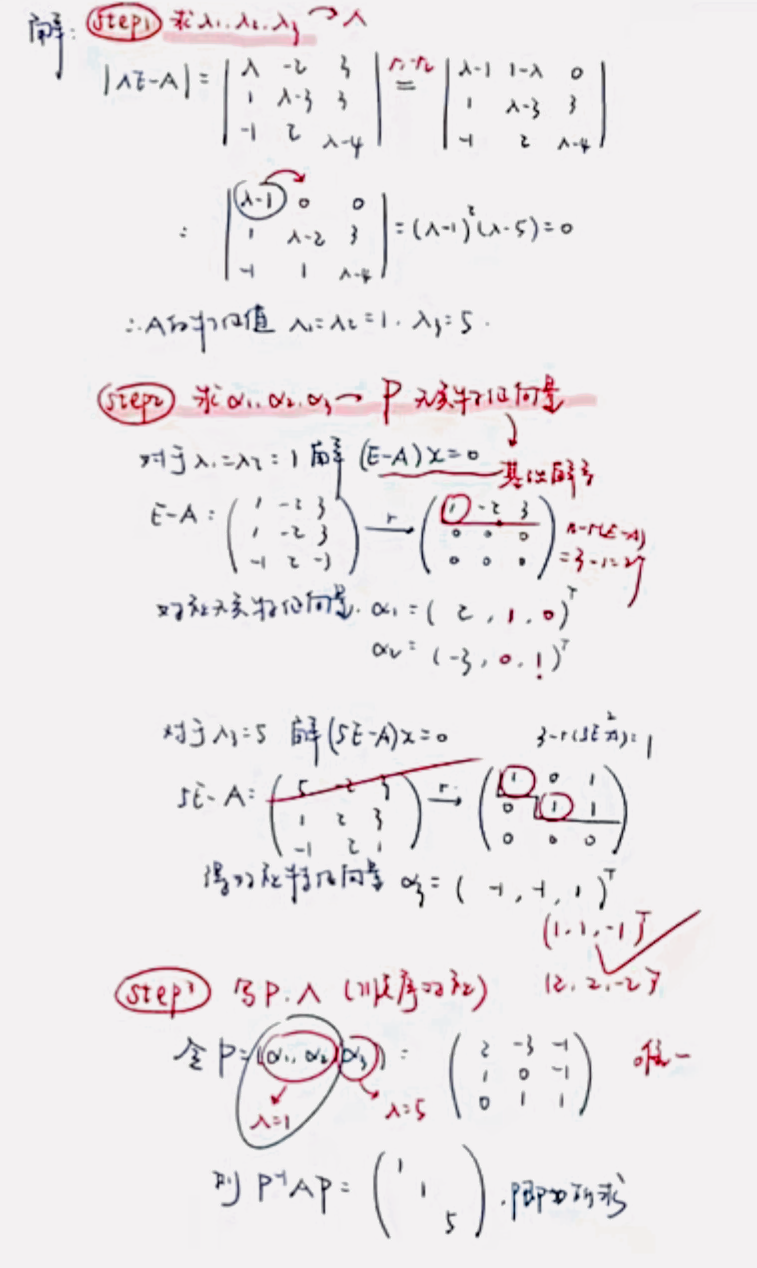 解: step1 求λ₁.λ₂.λ₃ → Λ
|λE-A| = | λ -2 3 | r₁-r₂ = | λ-1 1-λ 0 |
| 1 λ-3 3 | | 1 λ-3 3 |
| -1 2 λ-4 | | -1 2 λ-4 |
: | λ-1 0 0 |
| 1 λ-2 3 | = (λ-1)²(λ-5)=0
| -1 1 λ-4 |
∴A的特征值 λ₁=λ₂=1. λ₃=5.
step2 求α₁.α₂.α₃→ P 无关特征向量
对于λ₁=λ₂=1 解 (E-A)x=0 → 基础解系
E-A= ( 1 -2 3 ) r→ ( 1 -2 3 )
( 1 -2 3 ) ( 0 0 0 ) n-r(E-A)
( -1 2 -3 ) ( 0 0 0 ) =3-1=2
对应无关特征向量. α₁=( 2 , 1 , 0 )ᵀ
α₂= (-3 , 0 , 1)ᵀ
对于λ₃=5 解(5E-A)x=0 3-r(5E-A)=1
2
5E-A= ( 5 -2 3 ) r→ ( 1 0 1 )
( 1 2 3 ) ( 0 1 1 )
( -1 2 1 ) ( 0 0 0 )
得对应特征向量 α₃= ( -1 , -1 , 1 )ᵀ
(1.1.-1)ᵀ
(2.2.-2)ᵀ
step3 写P.Λ (顺序对应)
令P=(α₁, α₂, α₃) = ( 2 -3 -1 )
( 1 0 -1 )
( 0 1 1 )
λ=1 λ=5
则 P⁻¹AP= ( 1
1
5 ) .P即为所求